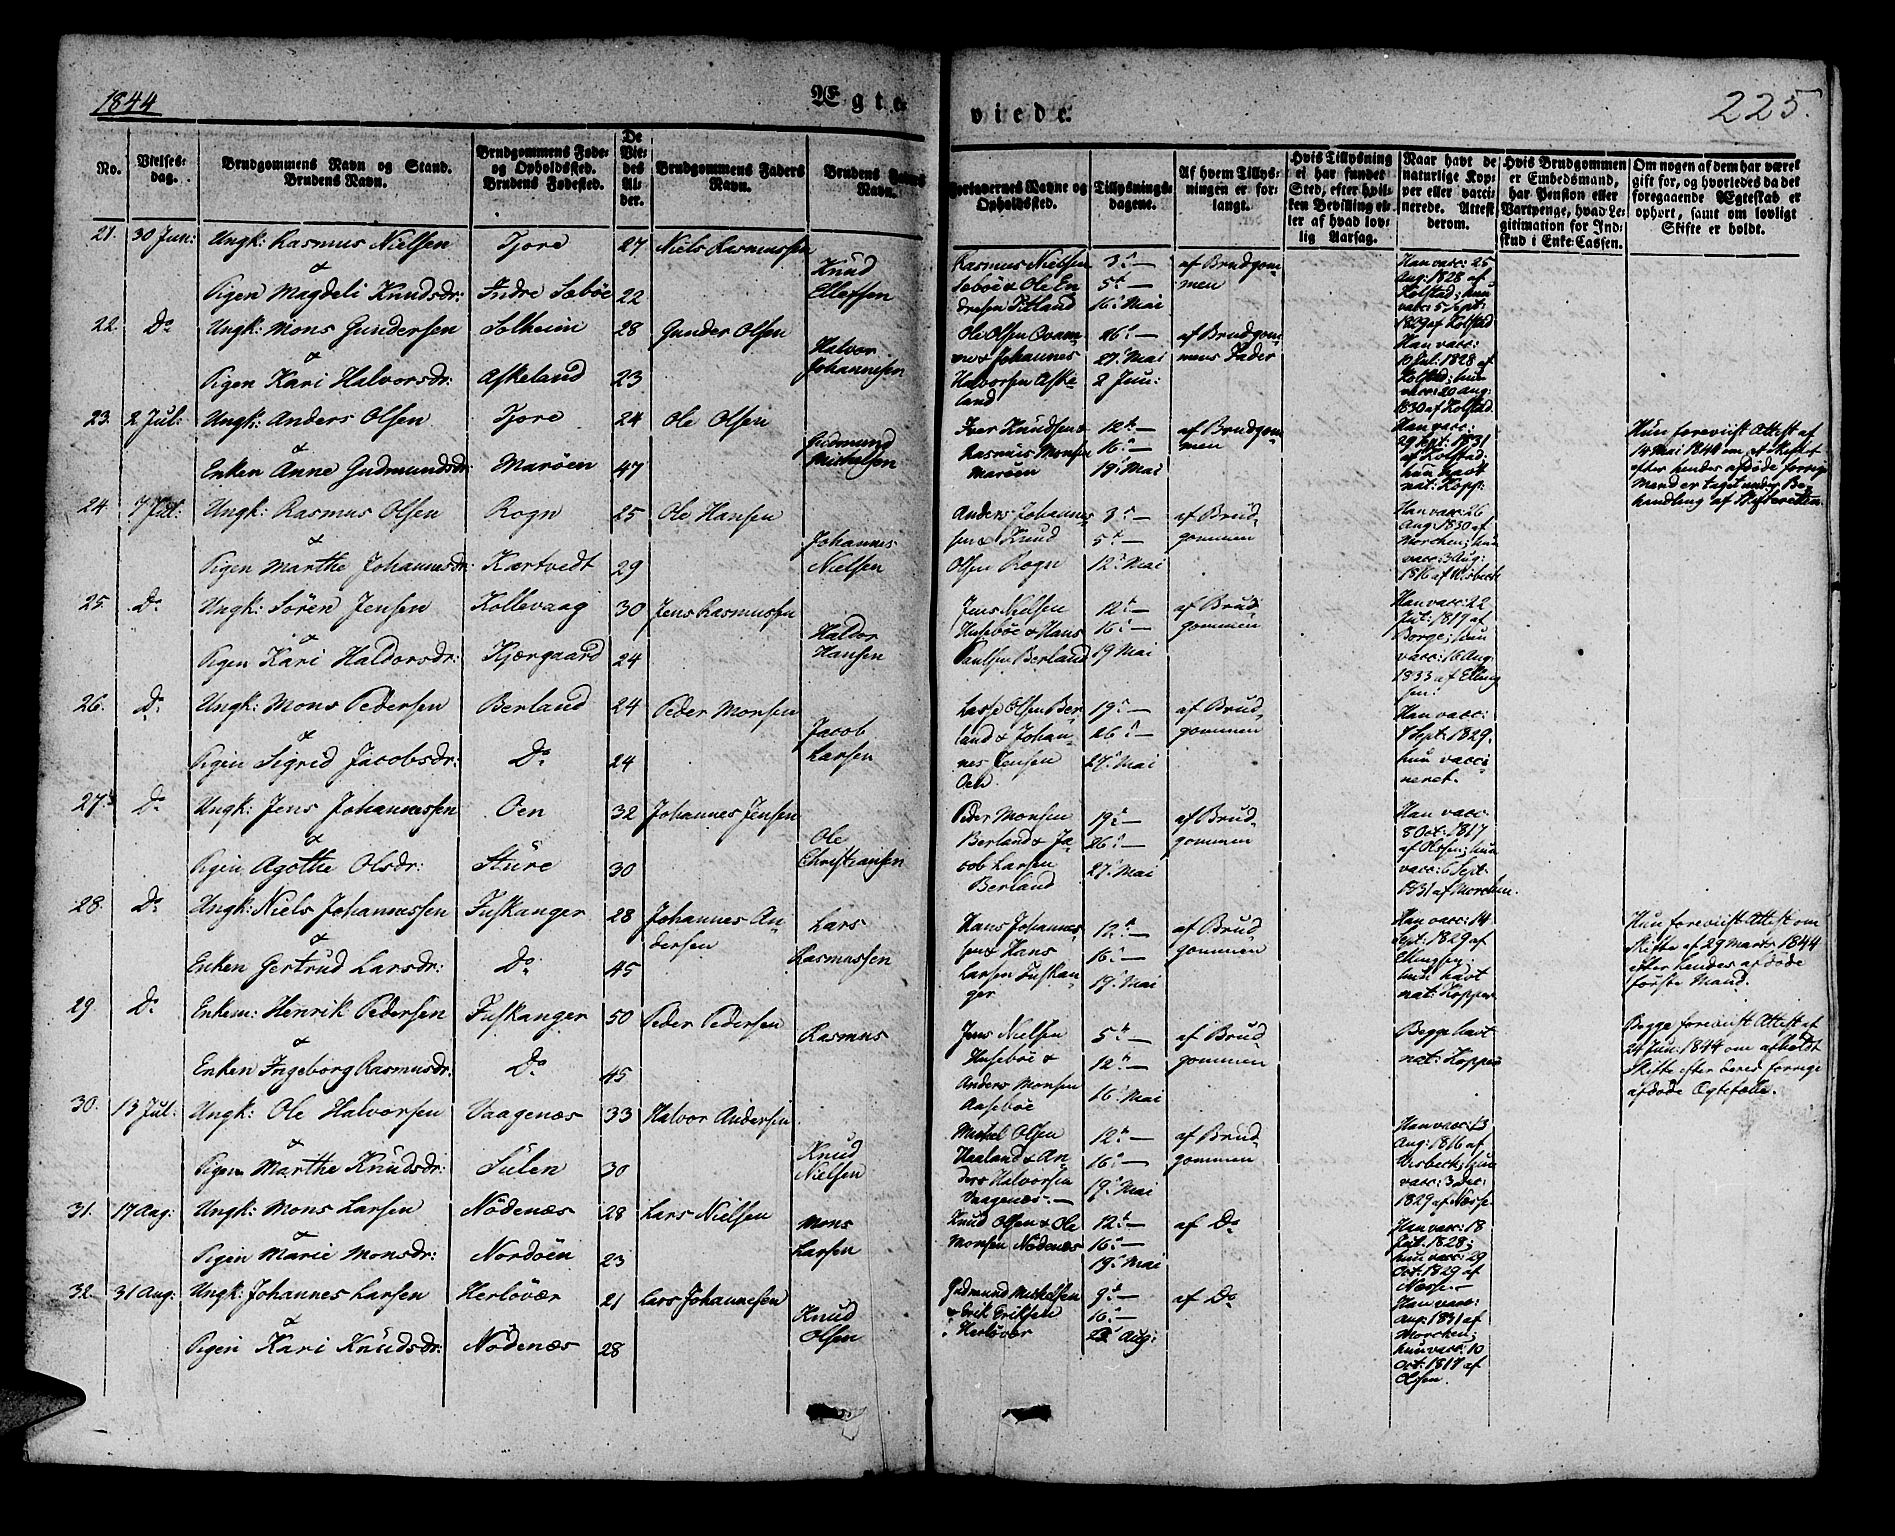 1844
Ægte viede.
225.
No.
Vielses-dag.
Brudgommens Navn og Stand. Brudens Navn.
Brudgommens Føde- og Opholdssted. Brudens Fødested.
De Viedes Alder.
Brudgommens Faders Navn.
Brudens Faders Navn.
Forlovernes Navne og Opholdssted.
Tillysnings-dagene.
Af hvem Tillysningen er forlangt.
Hvis Tillysning ei har fundet Sted, efter hvilken Bevilling eller af hvad lovlig Aarsag.
Naar havt de naturlige Kopper eller vaccinerede. Attest derom.
Hvis Brudgommen er Embedsmand, har Pension eller Vartpenge, hvad Legitimation for Indskud i Enke-Cassen.
Om nogen af dem har været gift før, og hvorledes da det foregaaende Ægteskab er ophørt, samt om lovligt Skifte er holdt.
21. 30 Jun: Ungk: Rasmus Nielsen Tjore 27 Niels Rasmussen
& Pigen Magdeli Knudsdr: Indre Sæbøe 22 Knud Ellefsen
Rasmus Nielsen Sebøe & Ole Endresen Titland
3d — 5t — 16d Mai
af Brudgommen
Han vacc: 25 Aug: 1828 af Kolstad; hun vacc: 5 Sept: 1829 af Kolstad
22. Do Ungk: Mons Gundersen Solheim 28 Gunder Olsen
& Pigen Kari Halvorsdr: Askeland 23 Halvor Johannesen
Ole Olsen & Johannes Halvorsen Askeland
26d — 27d Mai 2 Jun:
af Brudgommens Fader
Han vacc: Jul: 1828 af Kolstad; hun vacc: 20 Aug: 1830 af Kolstad
23. 2 Jul: Ungk: Anders Olsen Tjore 24 Ole Olsen
Enken Anne Gudmundsdr: Marøen 47 Gudmund Michelsen
Iver Knudsen & Rasmus Monsen Marøen
12t — 16d — 19d Mai
af Brudgommen
Han vacc: 29 Sept: 1831 af Kolstad: hun havt nat: Kopp:
Hun foreviist Attest af 14 Mai 1844 om at Skiftet efter hendes afdøde forrige Mand er taget under Behandling af Skifteretten.
24. 7 Jul: Ungk: Rasmus Olsen Rogn 25 Ole Hansen
& Pigen Marthe Johannesdr: Kartvedt 29 Johannes Nielsen
Anders Johannessen & Knud Olsen Rogn
3d — 5t — 12d Mai
af Brudgommen
Han vacc: 26 Aug: 1830 af Morchen; hun vacc: 3 Aug: 1816 af Wisbeck
25. Do Ungk: Sören Jensen Kollevaag 30 Jens Rasmussen
& Pigen Kari Haldorsdr: Kjærgaard 24 Haldor Hansen
Jens Nielsen Husebøe & Hans Paulsen Berland
12t — 16d — 19 Mai
af Brudgommen
Han vacc: 22 Jul: 1817 af Borge; hun vacc: 16 Aug: 1833 af Ellingsen:
26. Do Ungk: Mons Pedersen Berland 24 Peder Monsen
& Pigen Sigrid Jacobsdr: Do 24 Jacob Larsen
Lasse Olsen Berland & Johannes Jensen Oen.
19d — 26d — 27d Mai
af Brudgommen
Han vacc: Sept: 1829. hun vaccineret.
27. Do Ungk: Jens Johannessen Oen 32 Johannes Jensen
& Pigen Agothe Olsdr: Sture 30 Ole Christiansen
Peder Monsen Berland & Jacob Larsen Berland
19d — 26d — 27d Mai
af Brudgommen
Han vacc: 8 Oct: 1817 af Olssen; hun vacc: 6 Sept 1831 af Morchen.
28. Do Ungk: Niels Johannessen Fuskanger 28 Johannes Andersen
& Enken Gertrud Larsdr: Do 45 Lars Rasmussen
Hans Johannessen & Hans Larsen Fuskanger
12t — 16d — 19d Mai
af Brudgommen
Han vacc: 14 Sept: 1829 af Ellingsen: hun havt nat: Kopper
Hun foreviist Attest om Skifte af 29 Marts 1844 efter hendes afdøde første Mand.
29. Do Enkem: Henrik Pedersen Fuskanger 50 Peder Pedersen
& Enken Ingeborg Rasmusdr: Do 45 Rasmus
Jens Nielsen Husebøe & Anders Monsen Aasebøe
5t — 12t — 16d Mai
af Brudgommen
Begge havt nat: Kopper
Begge foreviist Attest af 24 Jun: 1844 om afholdt Skifte efter deres forrige afdøde Ægtefælle.
30. 13 Jul: Ungk: Ole Halvorsen Vaagenæs 33 Halvor Andersen
& Pigen Marthe Knudsdr: Sulen 30 Knud Nielsen
Mickel Olsen Haaland & Anders Halvorsen Vaagenæs. —
12t — 16d — 19d Mai
af Brudgommen
Han vacc: 13 Aug: 1816 af Wisbeck; hun vacc: 3 Dec: 1829 af Næsse.
31. 17 Aug: Ungk: Mons Larsen Nödenæs 28 Lars Nielsen
& Pigen Marie Monsdr: Nordöen 23 Mons Larsen
Knud Olsen & Ole Monsen Nödenæs
12t — 16d — 19d Mai
af Do
Han vacc: 18 Jul: 1828; hun vacc: 29 Oct: 1829 af Næsse. —
32. 31 Aug: Ungk: Johannes Larsen Herløvær 21 Lars Johannesen
& Pigen Kari Knudsdr: Nödenæs 28 Knud Olsen
Gudmund Mickelsen & Erik Eriksen Herløvær
9d — 16d — Aug:
af Do
Han vacc: Aug: 1831 af Morchen; hun vacc: 10 Oct: 1817 af Olssen.